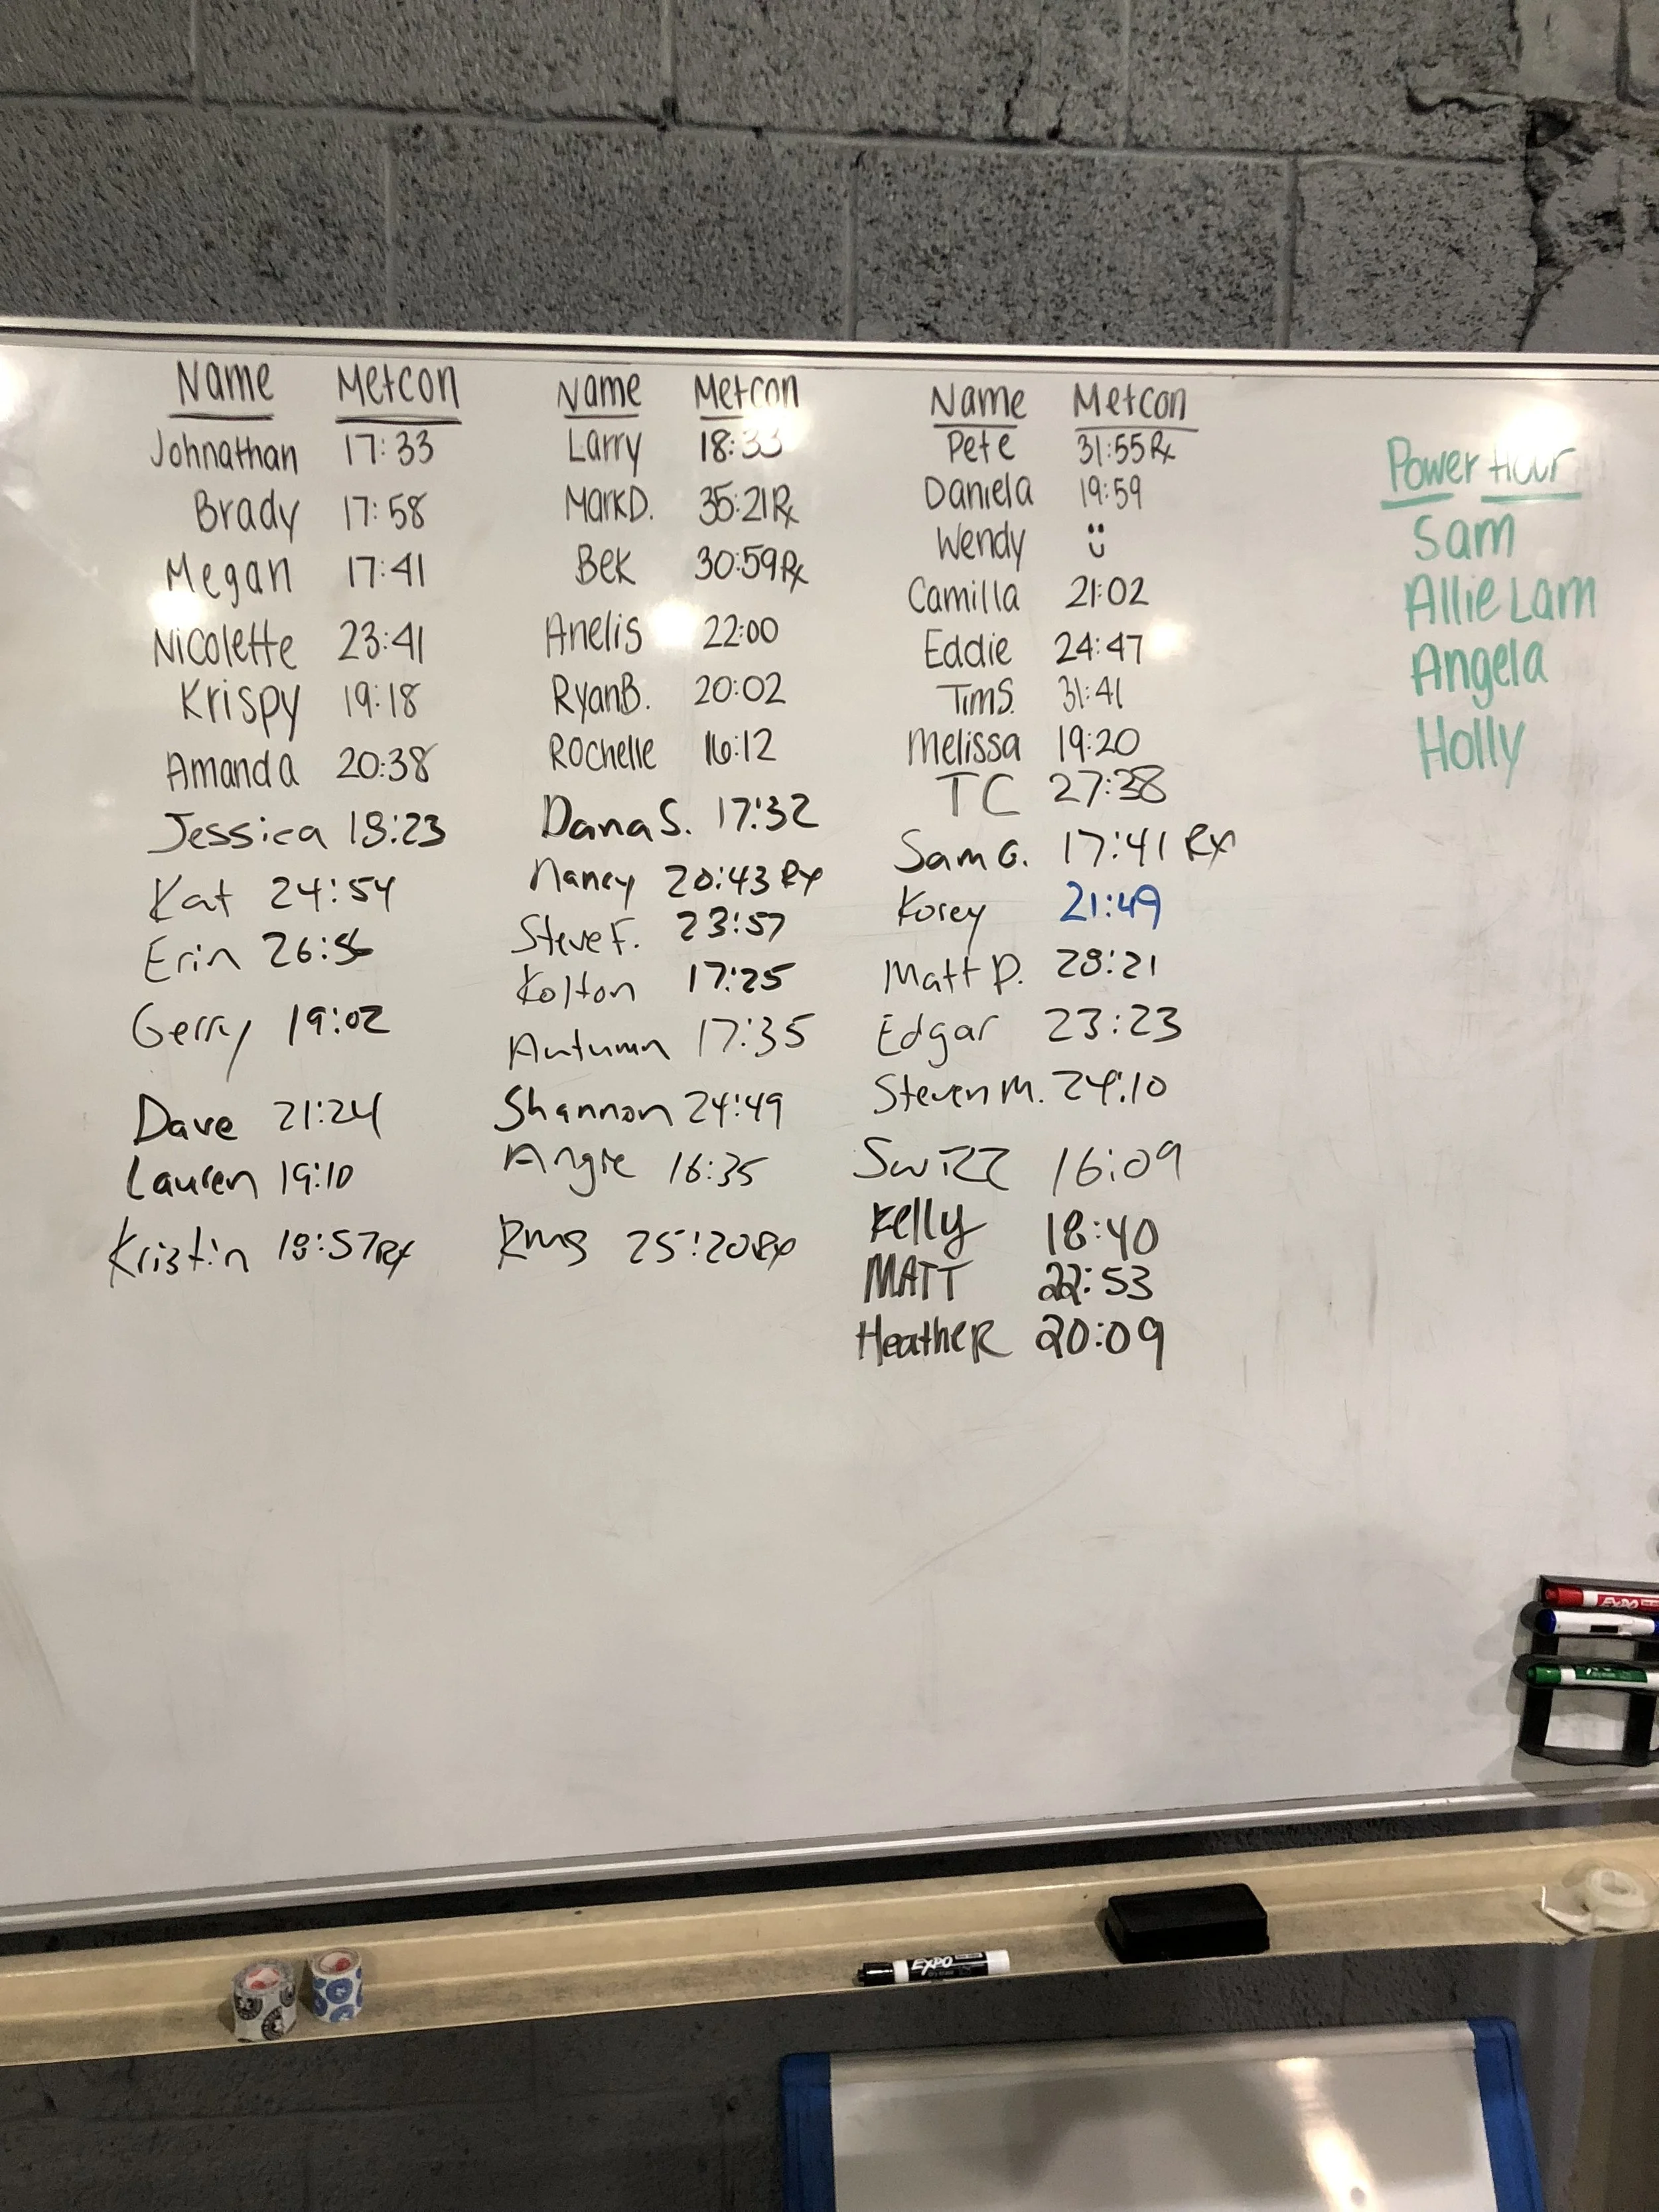 Name Metcon
Johnathan 17:33
Brady 17:58
Megan 17:41
Nicolette 23:41
Krispy 19:18
Amanda 20:38
Jessica 18:23
Kat 24:54
Erin 26:56
Gerry 19:02
Dave 21:24
Lauren 19:10
Kristin 18:57 Rx
Name Metcon
Larry 18:33
Mark D. 35:21 Rx
Bek 30:59 Rx
Anelis 22:00
Ryan B. 20:02
Rochelle 16:12
Dana S. 17:32
Nancy 20:43 Rx
Steve F. 23:57
Kolton 17:25
Autumn 17:35
Shannon 24:49
Angie 16:35
25:20 Rx
Name Metcon
Pete 31:55 Rx
Daniela 19:59
Wendy
Camilla 21:02
Eddie 24:47
Tim S. 31:41
Melissa 19:20
TC 27:38
Sam G. 17:41 Rx
Korey 21:49
Matt P. 28:21
Edgar 23:23
Steven M. 24:10
Swizz 16:09
Kelly 18:40
MATT 22:53
HeatheR 20:09
Power Hour
Sam
Allie Lam
Angela
Holly
EXPO
EXPO